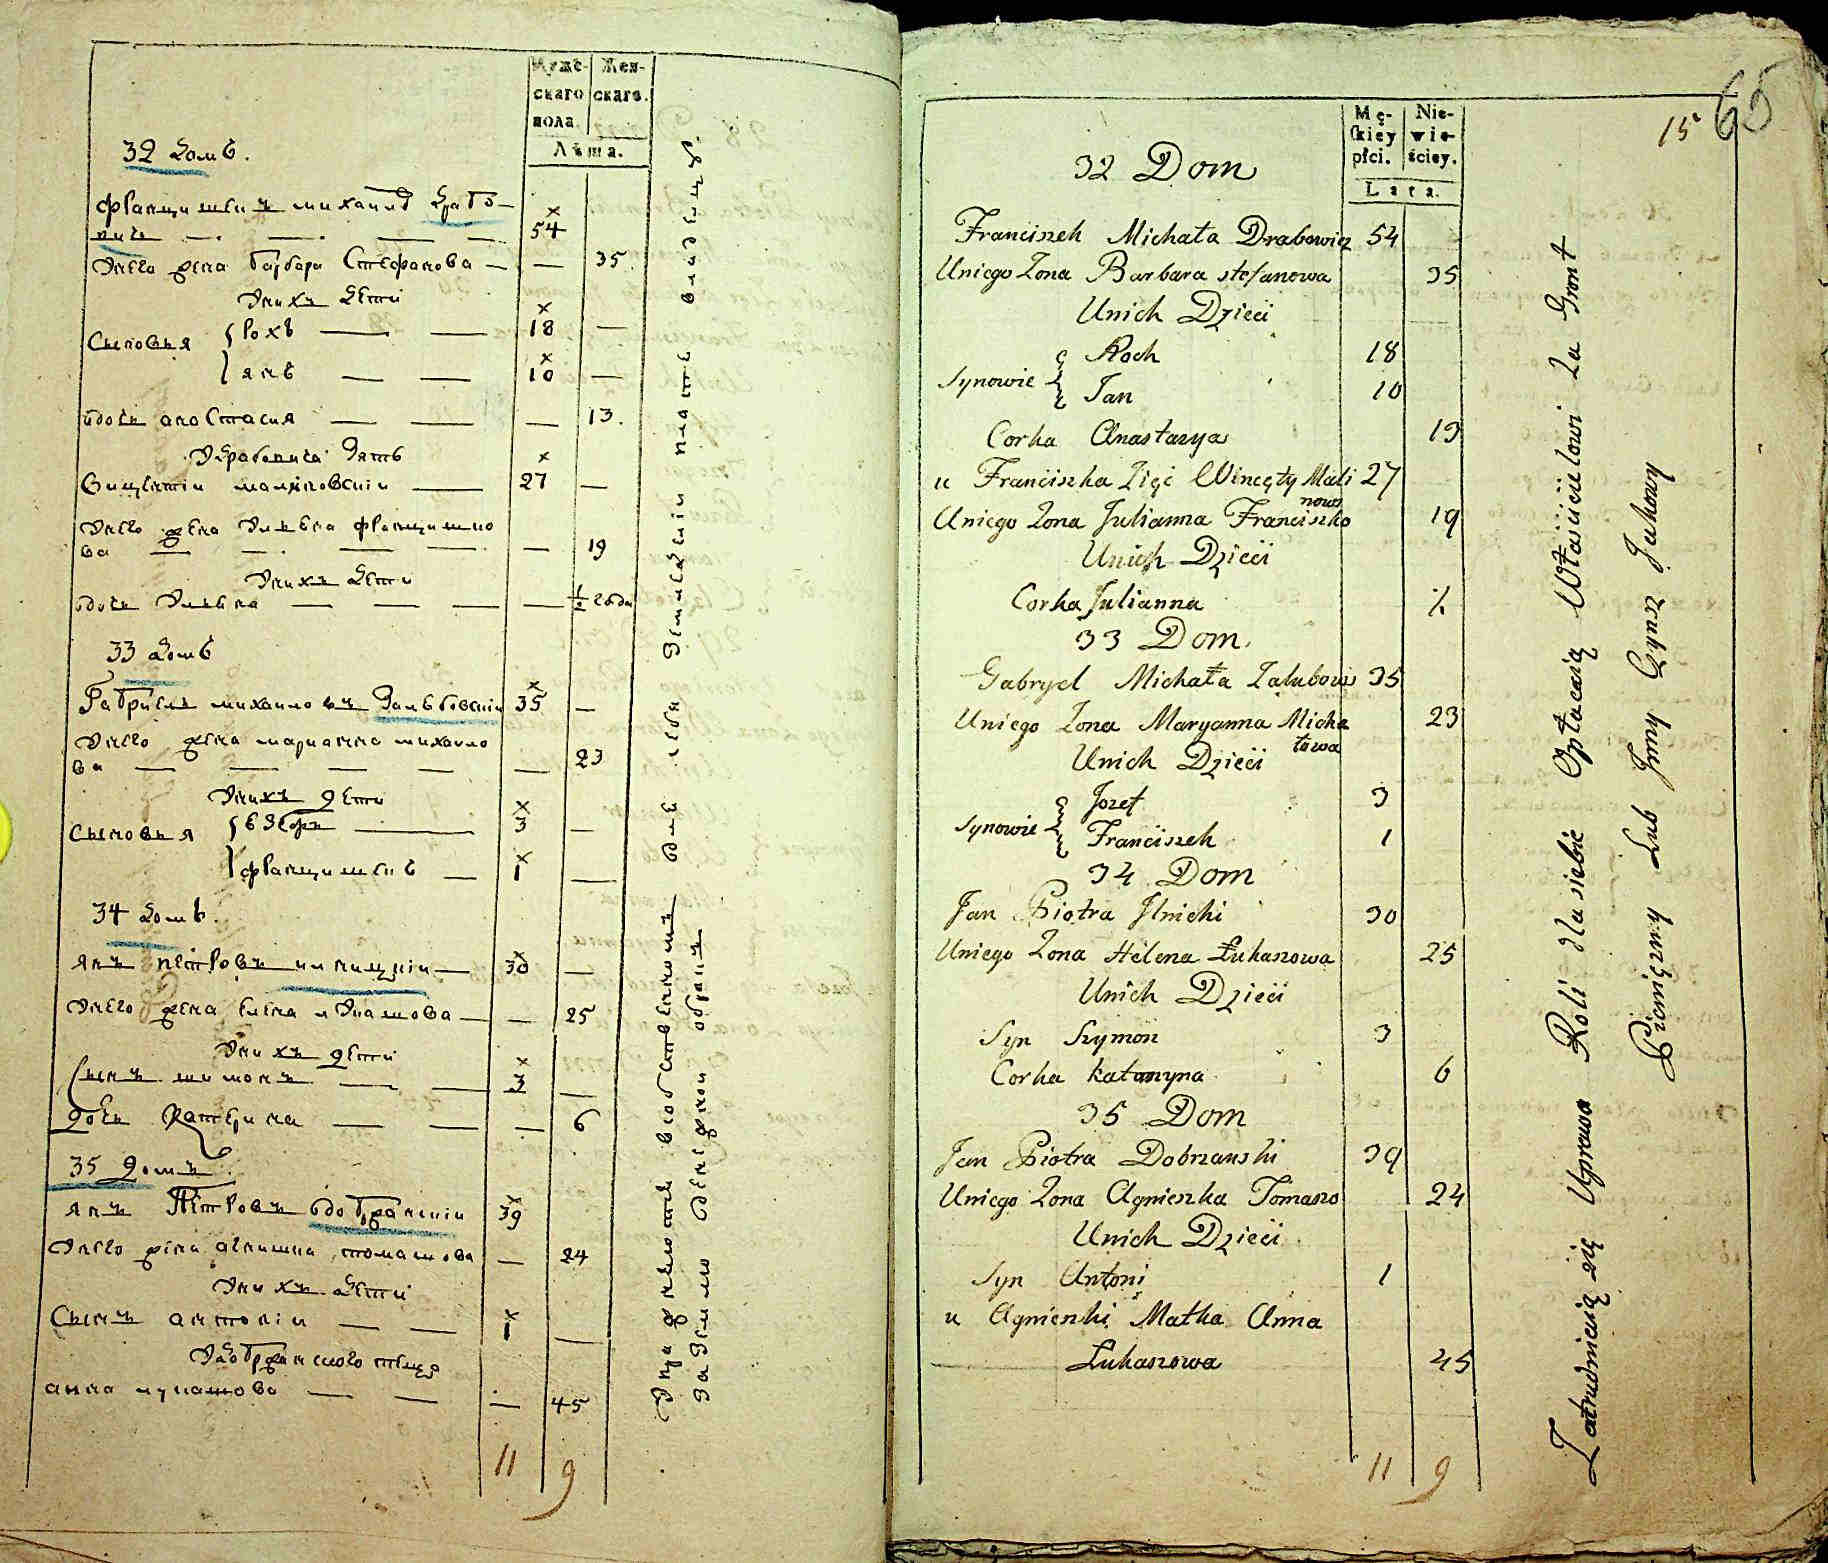 Муже-
скаго
пола.
Жен-
скаго.
Лѣта.
32 домъ.
Францишекъ михаилъ Драбо-
вичь 54
Унего жена барбара Стефанова 35
Унихъ дети
Сыновья рохъ 18
янъ 10
дочь анастасия 13.
Удрабовича зять
винцентiи малиновскiи 27
Унего жена францишко
ва 19
Унихъ дети
дочь 1/2 года
33 домъ
Габриель михаиловъ 35
Унего жена марианна михаило
ва 23
Унихъ дети
Сыновья 3
францишекъ 1
34 домъ.
янъ петровъ илницкiи 30
Унего жена елена 25
Унихъ дети
Сынъ шимонъ 3
дочь катерина 6
35 домъ
янъ Петровъ добржанскiи 39
Унего жена агнишка томашова 24
Унихъ дети
Сынъ антонiи 1
тыща
анна лукашова 45
11 9
65
15
Mę-
skiey
płci.
Nie-
wie-
ściey.
Lata.
32 Dom
Franciszek Michała Drabowicz 54
Uniego Żona Barbara stefanowa 35
Unich Dzieci
Synowie Roch 18
Jan 10
Corka Anastazya 13
u Franciszka Zięć Wincęty Mali 27
nows
Uniego Żona Julianna Franciszko 19
Unich Dzieci
Corka Julianna ½
33 Dom.
Gabryel Michała Zalubows 35
Uniego Żona Maryanna Micha 23
łowa
Unich Dzieci
Synowie Jozef 3
Franciszek 1
34 Dom
Jan Piotra Jlnicki 30
Uniego Żona Helena Łukaszowa 25
Unich Dzieci
Syn Szymon 3
Corka katarzyna 6
35 Dom
Jan Piotra Dobrzanski 39
Uniego Żona Agnieszka Tomaszo 24
Unich Dzieci
Syn Antoni 1
u Agnieszki Matka Anna
Łukaszowa 45
11 9
Zatrudnieią się Uprawą Roli dlasiebie Opłacaią Własicielowi za Gront
Pieniężny Lub Jnny Czynsz Jakowy